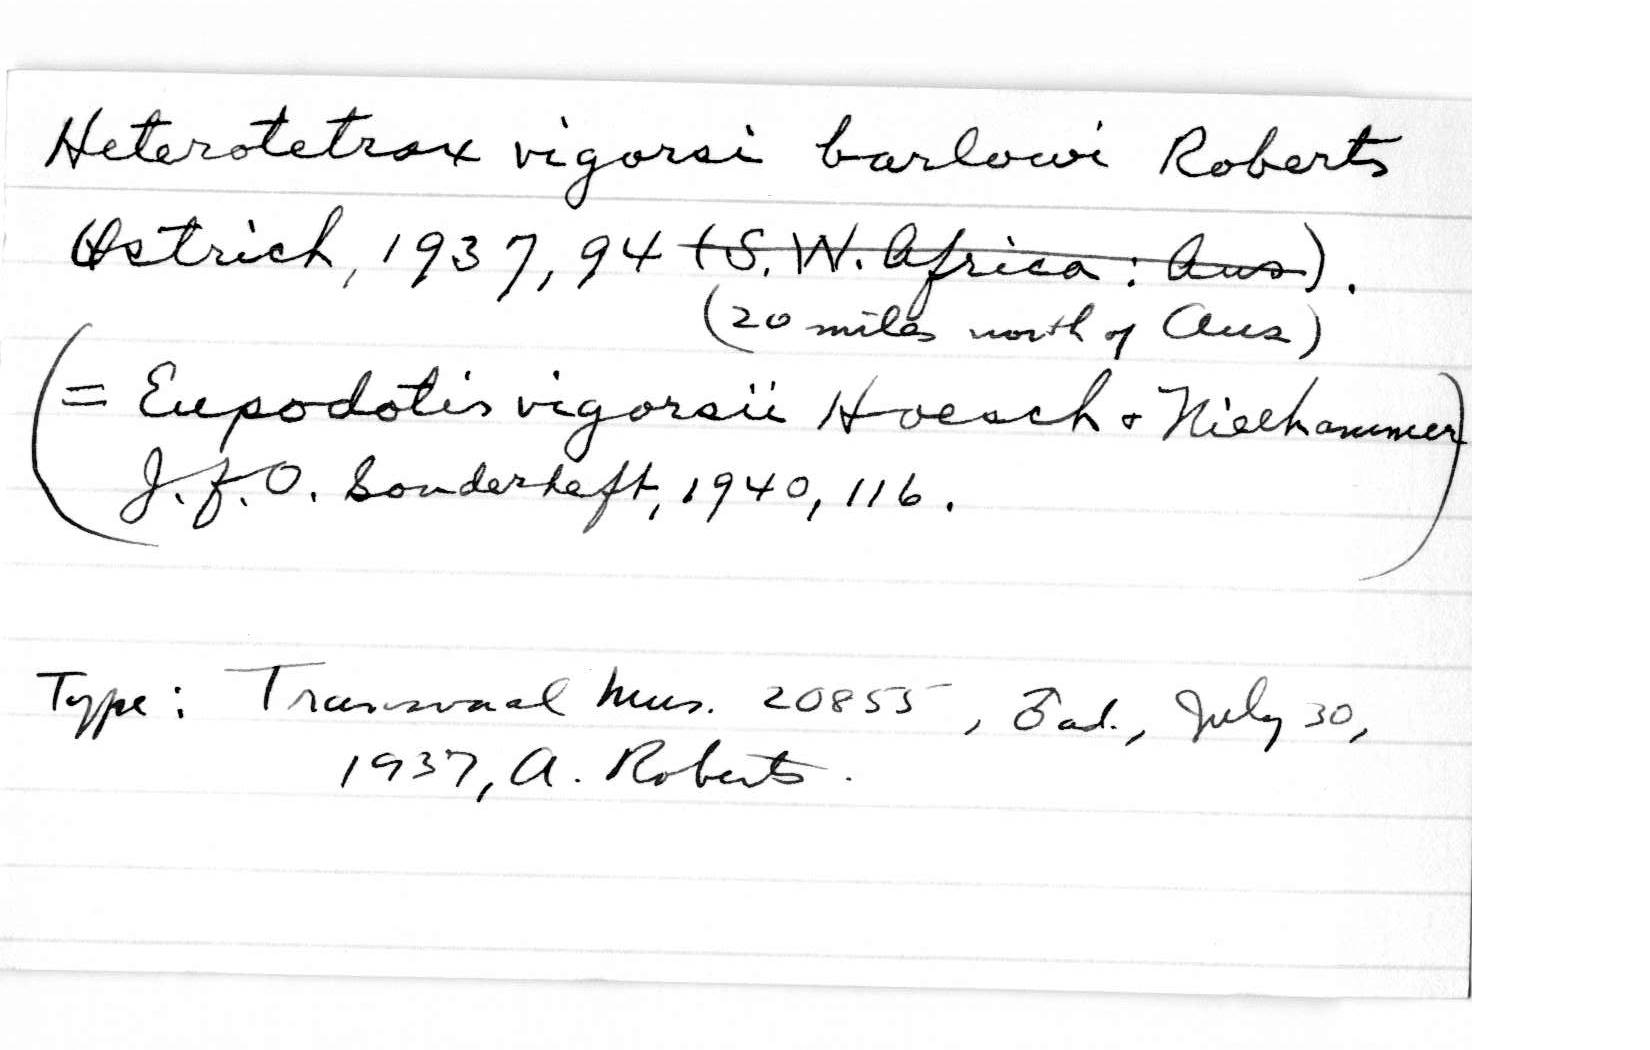 Heterotetrax vigorsi barlowi Roberts
Ostrich, 1937, 94 (S.W. Africa: Aus).
(20 miles north of Aus)
(= Eupodotis vigorsii Hoesch & Niethammer
J.f.O. Sonderheft, 1940, 116.)
Type: Transvaal Mus. 20855, ♂ ad., July 30,
1937, A. Roberts.